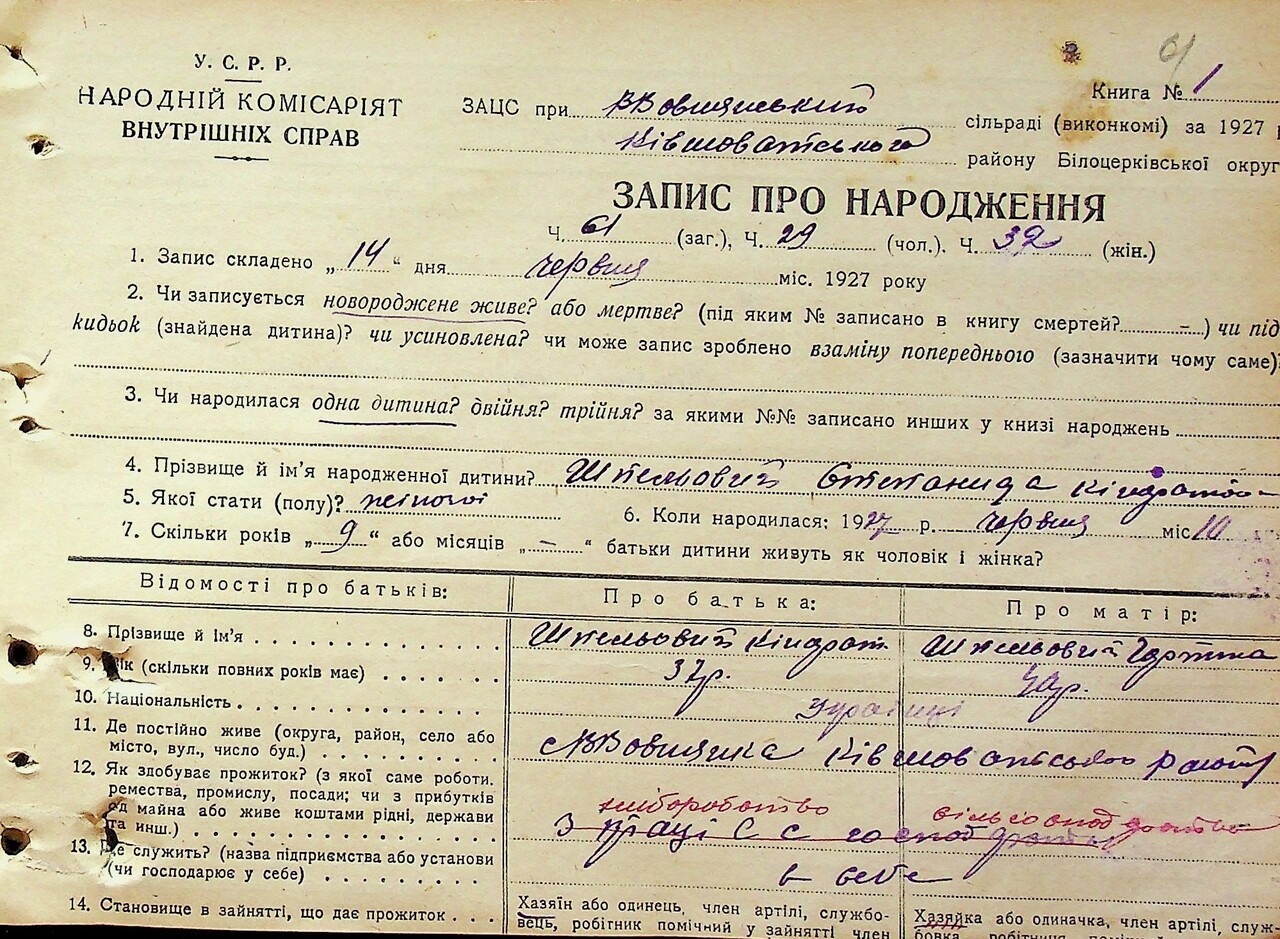 У. С. Р. Р.
НАРОДНІЙ КОМІСАРІЯТ
ВНУТРІШНІХ СПРАВ
61
Книга № 1
ЗАЦС при сільраді (виконкомі) за 1927 р
Ківшоватського району Білоцерківської округ
ЗАПИС ПРО НАРОДЖЕННЯ
Ч. 61 (заг.), Ч. 29 (чол.). Ч. 32 (жін.)
1. Запис складено „ 14 “ дня червня міс. 1927 року
2. Чи записується новороджене живе? або мертве? (під яким № записано в книгу смертей? – ) чи під
кидьок (знайдена дитина)? чи усиновлена? чи може запис зроблено взаміну попереднього (зазначити чому саме)?
3. Чи народилася одна дитина? двійня? трійня? за якими №№ записано инших у книзі народжень
4. Прізвище й ім'я народженної дитини? Шпильовий Степанида Кіндратов–
5. Якої стати (полу)? жіночої
6. Коли народилася: 1927 р. червня міс 10
7. Скільки років „ 9 “ або місяців „ – “ батьки дитини живуть як чоловік і жінка?
Відомості про батьків: Про батька: Про матір:
8. Прізвище й ім'я Шпильовий Кіндрат Шпильовий
9. Вік (скільки повних років має) 37р.
10. Національність Українці
11. Де постійно живе (округа, район, село або
місто, вул., число буд.) Ківшоватського району
12. Як здобуває прожиток? (з якої саме роботи.
ремества, промислу, посади; чи з прибутків
од майна або живе коштами рідні, держави
та инш.) хліборобство з праці С С господ
13. Де служить? (назва підприємства або установи
(чи господарює у себе) в себе
14. Становище в зайнятті, що дає прожиток
Хазяїн або одинець, член артілі, службо-
вець, робітник помічний у зайнятті член
Хазяйка або одиначка, член артілі, служ-
бовка